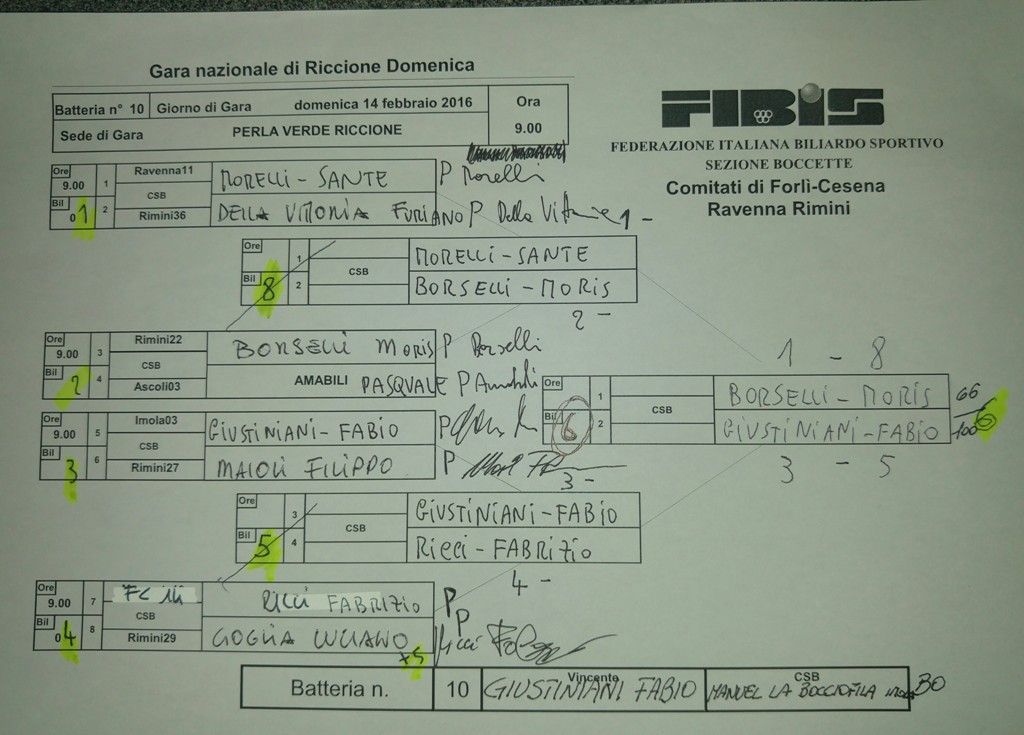 Gara nazionale di Riccione Domenica
Batteria n° 10 Giorno di Gara domenica 14 febbraio 2016 Ora
Sede di Gara PERLA VERDE RICCIONE 9.00
FIBIS
FEDERAZIONE ITALIANA BILIARDO SPORTIVO
SEZIONE BOCCETTE
Comitati di Forlì-Cesena
Ravenna Rimini
Ore 9.00 1 Ravenna11 MORELLI - SANTE P Morelli
CSB
Bil 01 2 Rimini36 DELLA VITTORIA FURIANO P Della Vittoria 1 -
Ore 1 CSB MORELLI - SANTE
Bil 8 2 BORSELLI - MORIS
2 -
Ore 9.00 3 Rimini22 BORSELLI MORIS P Borselli
CSB
Bil 2 4 Ascoli03 AMABILI PASQUALE P Amabili
1 - 8
Ore 1 CSB BORSELLI - MORIS 66
Bil 6 2 GIUSTINIANI - FABIO 100 6
3 - 5
Ore 9.00 5 Imola03 GIUSTINIANI - FABIO P
CSB
Bil 3 6 Rimini27 MAIOLI FILIPPO P
3 -
Ore 3 CSB GIUSTINIANI - FABIO
Bil 5 4 RICCI - FABRIZIO
4 -
Ore 9.00 7 FC RICCI FABRIZIO P
CSB
Bil 04 8 Rimini29 GOGLIA LUCIANO +5 P Ricci
Batteria n. 10 Vincente GIUSTINIANI FABIO CSB MANUEL LA BOCCIOFILA BO